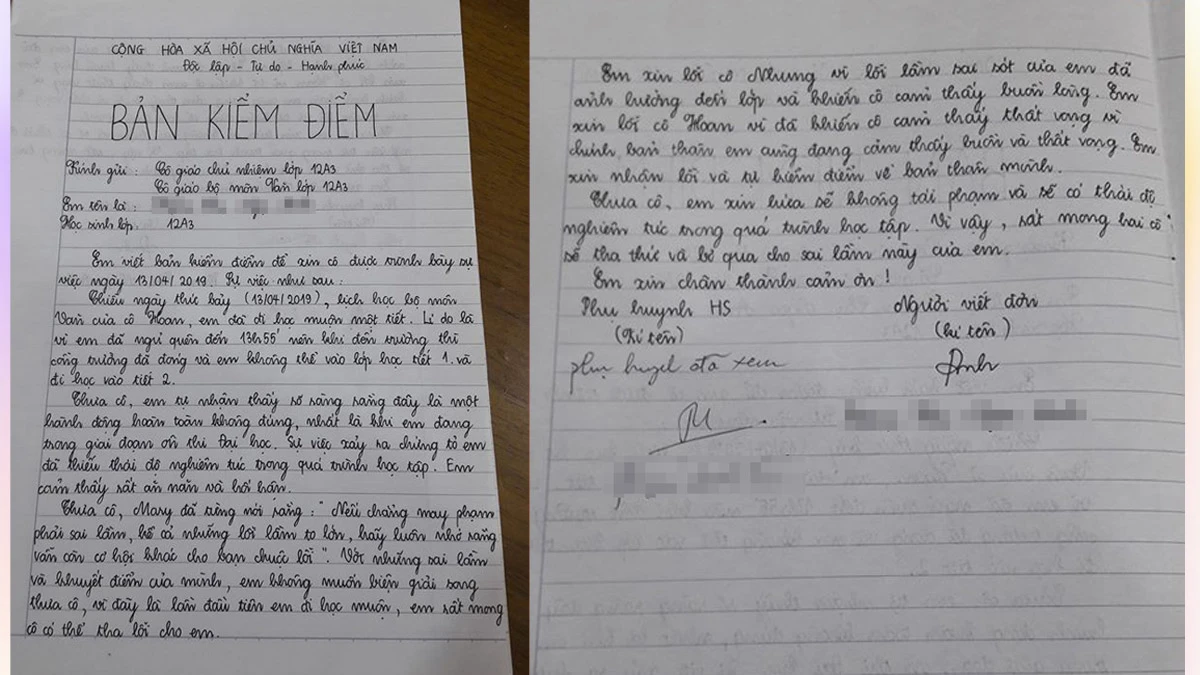 CỘNG HÒA XÃ HỘI CHỦ NGHĨA VIỆT NAM
Độc lập - Tự do - Hạnh phúc
BẢN KIỂM ĐIỂM
Kính gửi : Cô giáo chủ nhiệm lớp 12A3
Cô giáo bộ môn Văn lớp 12A3
Em tên là :
Học sinh lớp : 12A3
Em viết bản kiểm điểm để xin có được trình bày sự
việc ngày 13/04/2019. Sự việc như sau :
Chiều ngày thứ bảy (13/04/2019), lịch học bộ môn
Văn của cô Hoan, em đã đi học muộn một tiết. Lí do là
vì em đã ngủ quên đến 13h55' nên khi đến trường thì
cổng trường đã đóng và em không thể vào lớp học tiết 1 và
đi học vào tiết 2.
Thưa cô, em tự nhận thấy rõ ràng rằng đây là một
hành động hoàn toàn không đúng, nhất là khi em đang
trong giai đoạn ôn thi Đại học. Sự việc xảy ra chứng tỏ em
đã thiếu thái độ nghiêm túc trong quá trình học tập. Em
cảm thấy rất ăn năn và hối hận.
Thưa cô, Mary đã từng nói rằng : "Nếu chẳng may phạm
phải sai lầm, kể cả những lỗi lầm to lớn, hãy luôn nhớ rằng
vẫn còn cơ hội khác cho bạn chuộc lỗi". Với những sai lầm
và khuyết điểm của mình, em không muốn biện giải song
thưa cô, vì đây là lần đầu tiên em đi học muộn, em rất mong
cô có thể tha lỗi cho em.
Em xin lỗi cô Nhung vì lỗi lầm sai sót của em đã
ảnh hưởng đến lớp và khiến cô cảm thấy buồn lòng. Em
xin lỗi cô Hoan vì đã khiến cô cảm thấy thất vọng vì
chính bản thân em cũng đang cảm thấy buồn và thất vọng. Em
xin nhận lỗi và tự kiểm điểm về bản thân mình.
Thưa cô, em xin hứa sẽ không tái phạm và sẽ có thái độ
nghiêm túc trong quá trình học tập. Vì vậy, rất mong hai cô
sẽ tha thứ và bỏ qua cho sai lầm này của em.
Em xin chân thành cảm ơn !
Phụ huynh HS Người viết đơn
(Kí tên) (kí tên)
phụ huynh đã xem Anh